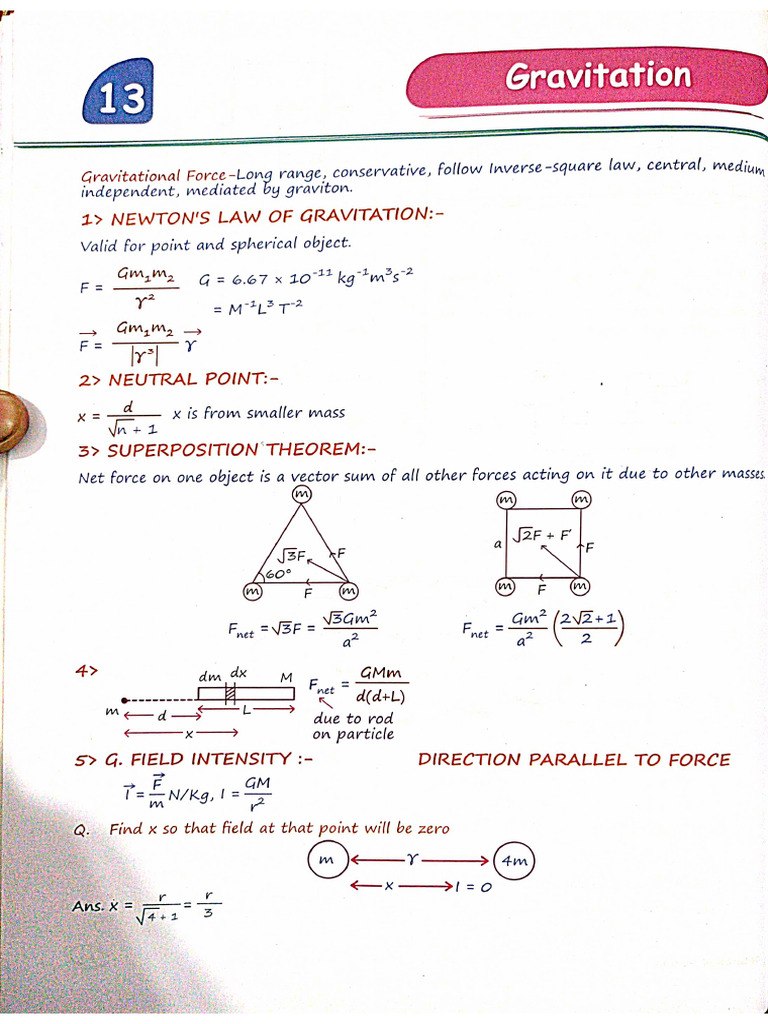 13
Gravitation
Gravitational Force-Long range, conservative, follow Inverse-square law, central, medium
independent, mediated by graviton.
1> NEWTON'S LAW OF GRAVITATION:-
Valid for point and spherical object.
F = Gm₁m₂ / r² G = 6.67 × 10⁻¹¹ kg⁻¹m³s⁻²
= M⁻¹L³ T⁻²
F⃗ = Gm₁m₂ / |r³| r⃗
2> NEUTRAL POINT:-
x = d / √n + 1 x is from smaller mass
3> SUPERPOSITION THEOREM:-
Net force on one object is a vector sum of all other forces acting on it due to other masses.
m
√3F F
60°
m F m
F_net = √3F = √3Gm² / a²
m m
a √2F + F' F
m F m
F_net = Gm² / a² (2√2+1 / 2)
4>
dm dx M
m d L
x
F_net = GMm / d(d+L)
due to rod
on particle
5> G. FIELD INTENSITY :- DIRECTION PARALLEL TO FORCE
I⃗ = F⃗ / m N/Kg, I = GM / r²
Q. Find x so that field at that point will be zero
m r 4m
x I = 0
Ans. x = r / √4 + 1 = r / 3